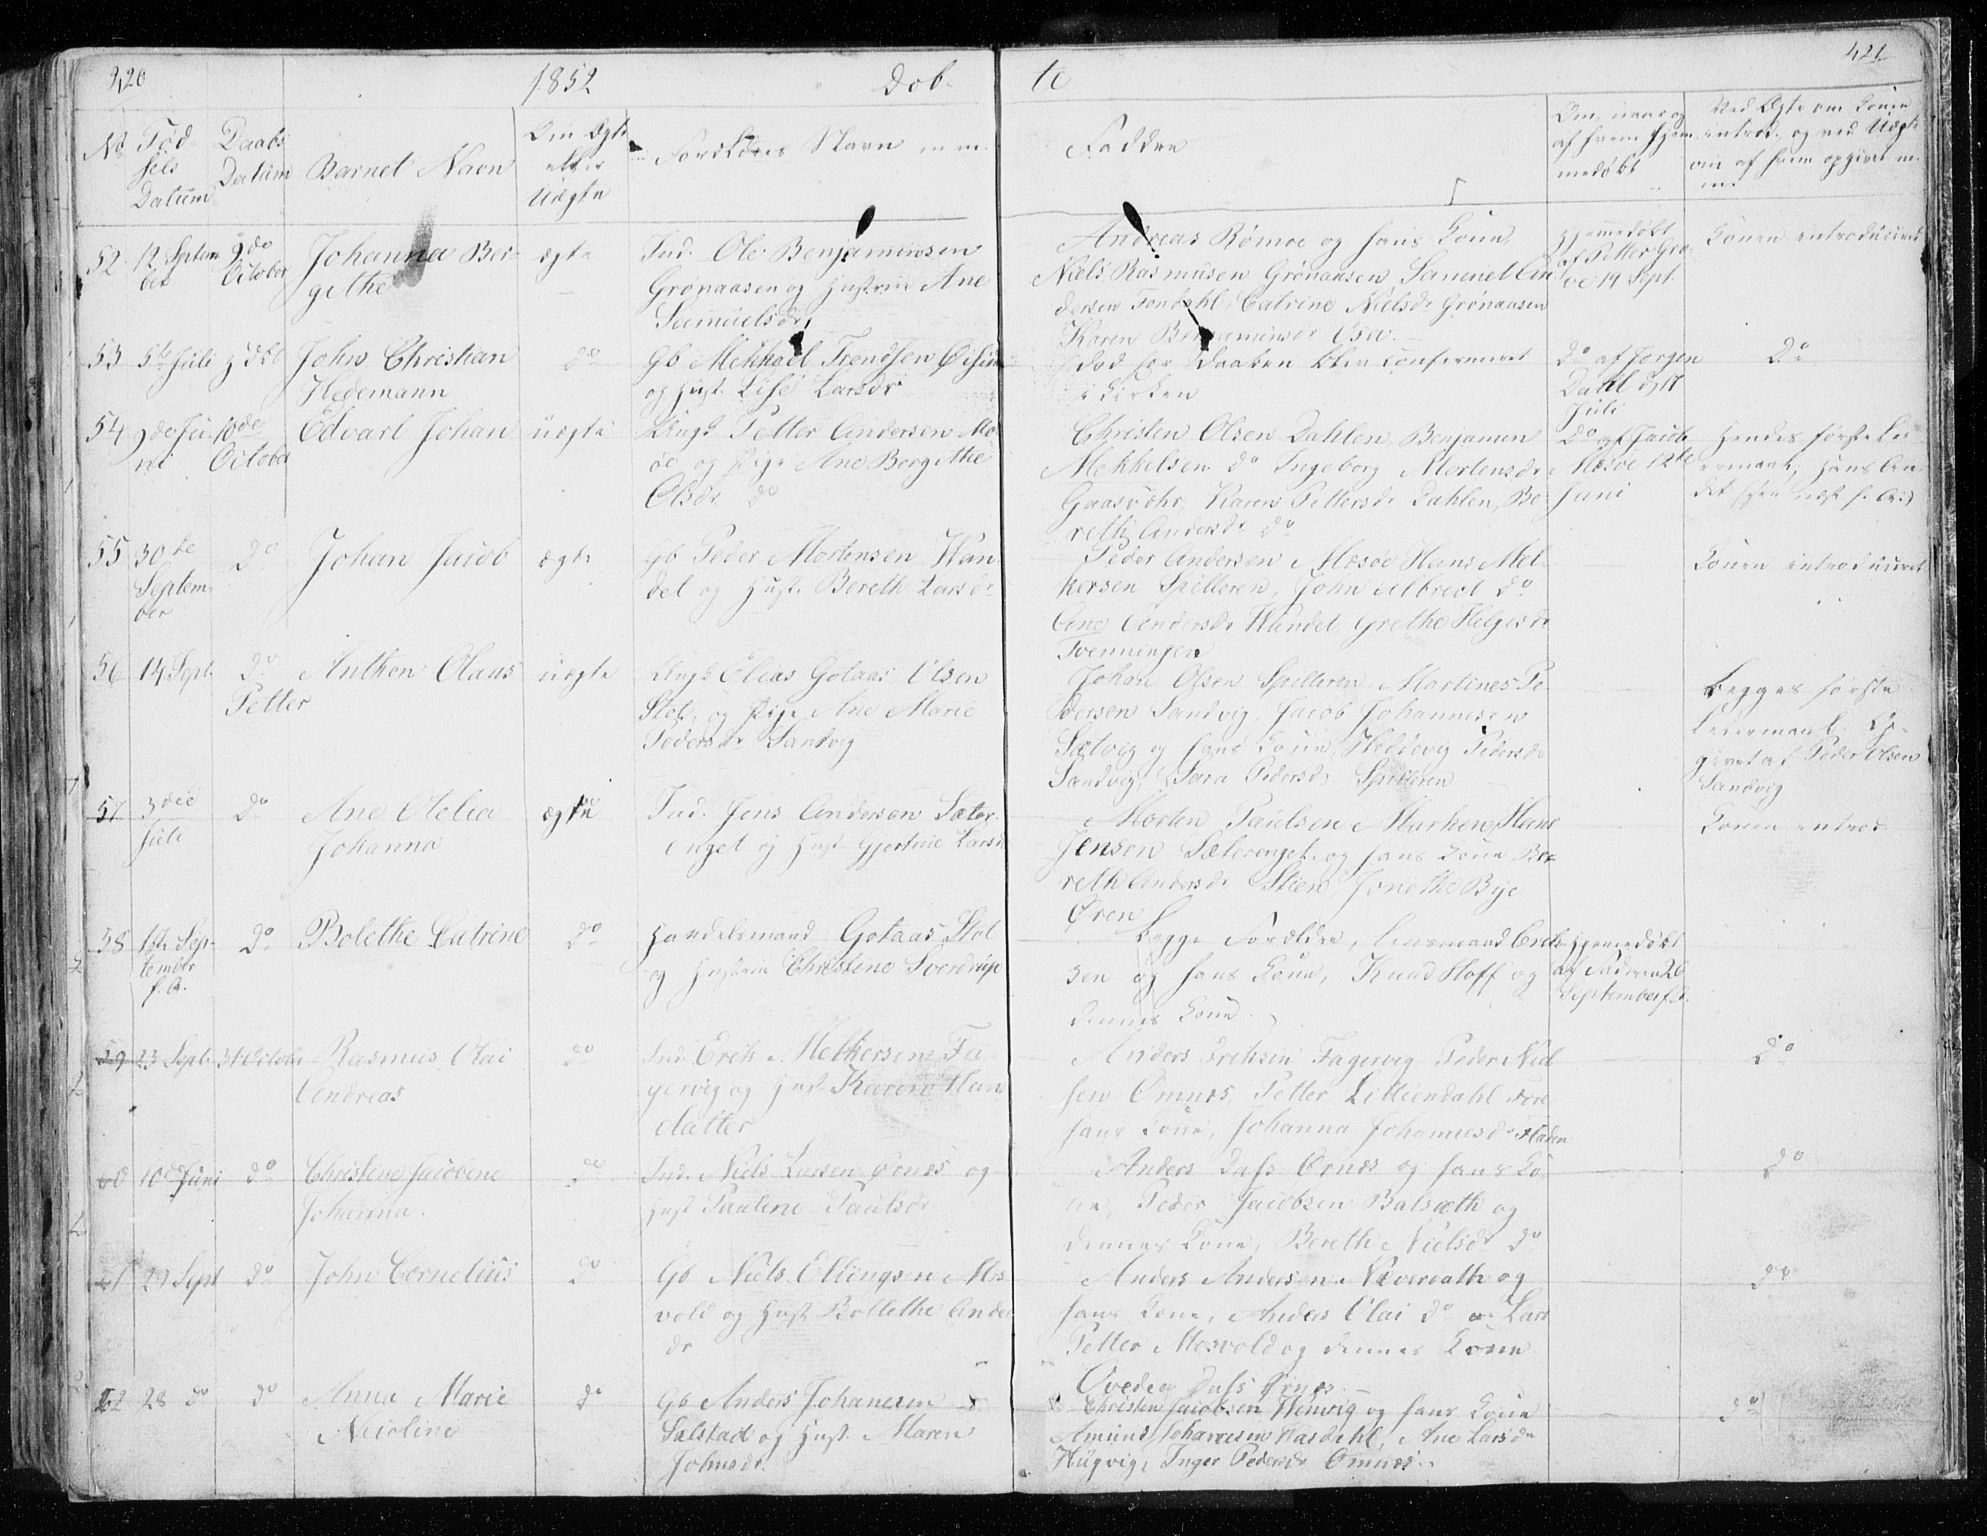 420
1852
Døb-
te
421
No
Fød
sels
Datum
Daabs
Datum
Barnet Navn
Om Ægte
eller
Uægte
Forældres Navn m m.
Faddre
Om, naar og
af hvem hjem
medøbt
Ved Ægte om Konen
introd. og ved Uægte
om af hvem opgivet m.
m.
52 12 Septem
ber
9do
October
Johanna Ber-
githe
ægte
Ind. Ole Benjaminsen
Grønaasen og Hustrue Ane
Seemuelsdr
Andreas Rømoe og hans Kone,
Niels Rasmusen Grønaasen, Samuel An
dersen Fondahl, Catrine Nielsdr Grønaasen
Karen Benjaminsdr Osen.
Hjemmedøbt
af Petter Grø
oe 14 Sept.
Konen introduceret
53 5te Juli
John Christian
Hedemann
do
Gb Mekkael Trondsen
og Hust. Lise Larsdr
Død før Daaben blev confirmeret
i Kirken
Do af Jørgen
Dahl d. 17
Juli
Do
54 9de Ju
ni
10de
October
Edvart Johan
uægte
Ungk Petter Andersen Mæ
øe og Pige Ane Bergithe
Olsdr do
Christen Olsen Dahlen, Benjamin
Mekkelsen do Ingeborg Mortensdr
Gaasvær, Karen Pettersdr Dahlen, Be
reth Andersdr do
Do af Jacob
Mæsøe 12te
Juni
Hendes første Lei
ermaal, hans An
det
55 30te
Septem-
ber
Do
Johan Jacob
ægte
Gb Peder Mortensen Wan
del og Hust. Bereth Larsdr
Peder Andersen Mæsøe Hans Mel
kersen Spilleren, John Albrect do
Ane Andersdr Wandel, Grethe Helgesdr
Tvenningen
Konen introduceret
56 14 Sept.
Do
Anthon Olaus
Petter
uægte
Ungk Elias Gotaas Olsen
Stok, og Pige Ane Marie
Pedersdr Sandvig
Johan Olsen Spilleren, Martines Pe
dersen Sandvig, Jacob Johannesen
Sætvig og hans Kone, Heddevig Pedersdr
Sandvig, Sara Pedersdr Spilleren
begges første
Leiermaal. Op-
givet af Peder Olsen
Sandvig
57 3die
Juli
do
Ane Otelia
Johanna
ægte
Ind. Jens Andersen Sæter
enget og Hust Gjertrue Larsdr
Morten Paulsen Marken, Hans
Jenson Sæterenget, og hans Kone Be
reth Andersdr Stien Jonethe Bye
Øren
Konen introd.
58 18te Sep-
tember
f. A.
Do
Bolethe Catrine
do
Handelsmand Gotaas Stol
og Hustrue Christine Sverdrup
Begge Forældre, Lensmand Erik
sen og hans Kone, Knud Hoff og
dennes Kone.
Hjemmedøbt
af Faderen 26
September f. A.
59 23 Sept 31 October
Rasmus Olai
Andreas
do
Ind. Erik Melkersen Fa
gervig og Hust Karen Han
datter
Anders Eriksen Fagervig Peder Niel
sen Omnes, Petter Lilliendahl Føre
hans Kone, Johanna Johannesdr Staden
do
60 10de Juni
do
Christine Jacobine
Johanna.
do
Ind. Niels Larsen Ørnes og
Hust Pauline Paulsdr
Anders Dass Ørnes og hans Ko
ne, Peder Jacobsen Balsæth og
dennes Kone, Bereth Nielsdr do
do
61 29 Sept
do
John Cornelius
do
Gb Niels Ellingsen Mos
vold og Hust Bollethe Anders
dr
Anders Andersen Neverath og
hans Kone, Anders Olai do og Lars
Petter Mosvold og dennes Kone
Ovedea Dass Ørnes
do
62 28 do
do
Anna Marie
Nicoline
do
Gb Anders Johanesen
Salstad og Hust. Maren
Johnsdr.
Christen Jacobsen Henvig og hans Kone
Amund Johannesen Hasdahl, Ane Larsdr
Hugvig, Inger Pedersdr Omnes.
do